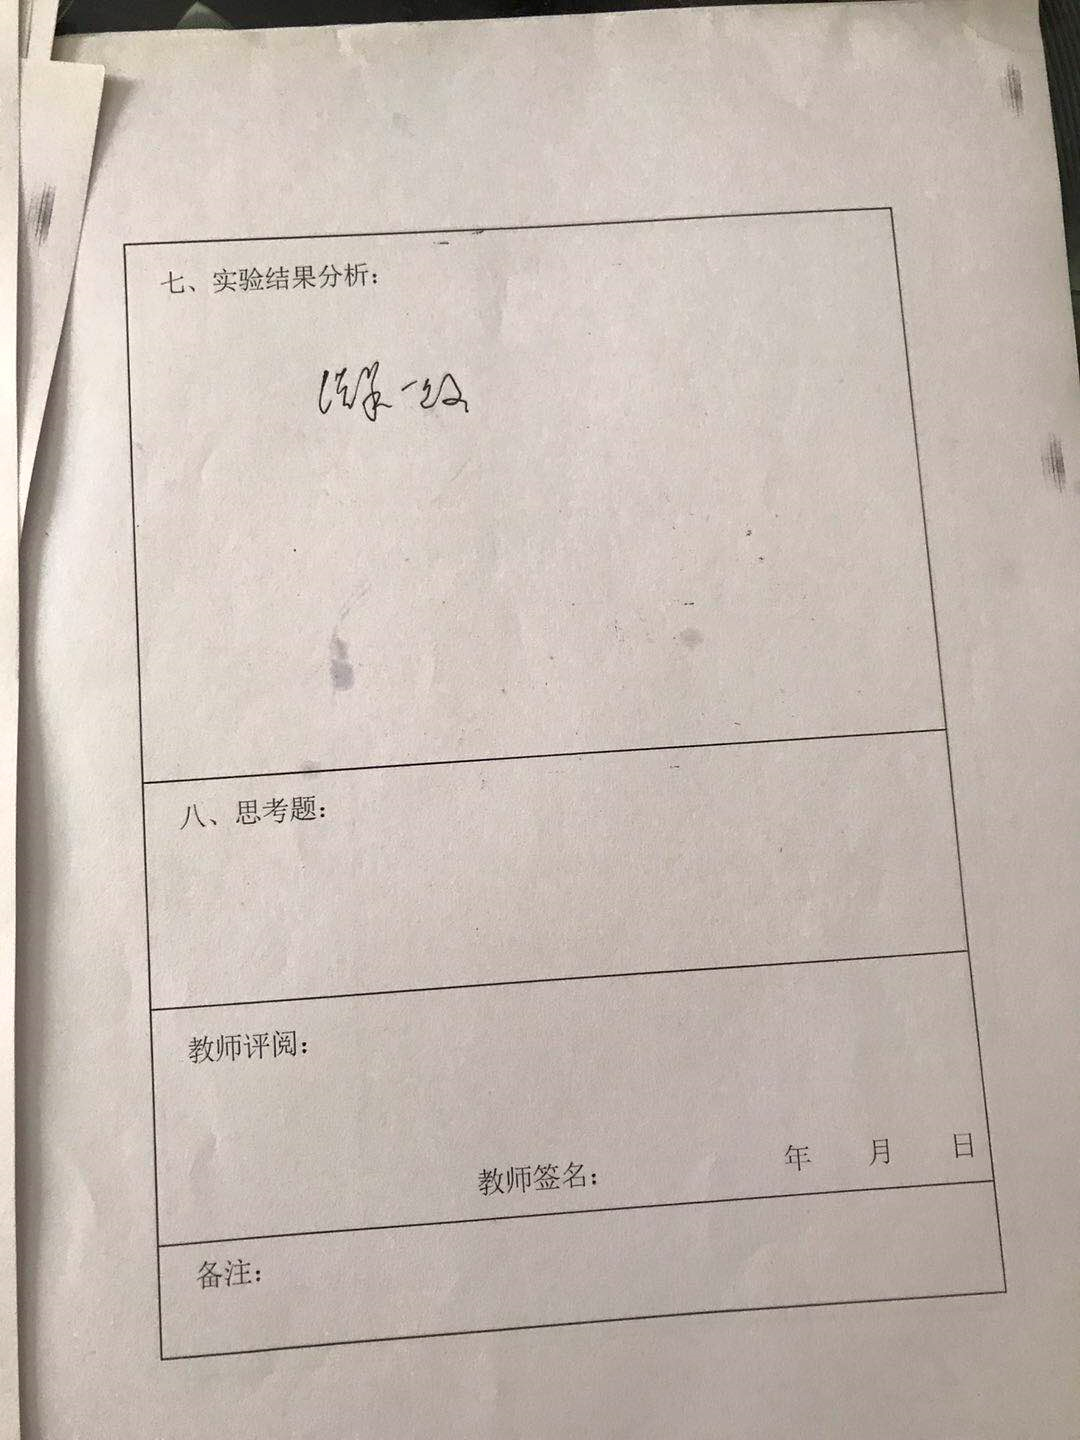 七、实验结果分析：
结果一致
八、思考题：
教师评阅：
教师签名： 年 月 日
备注：